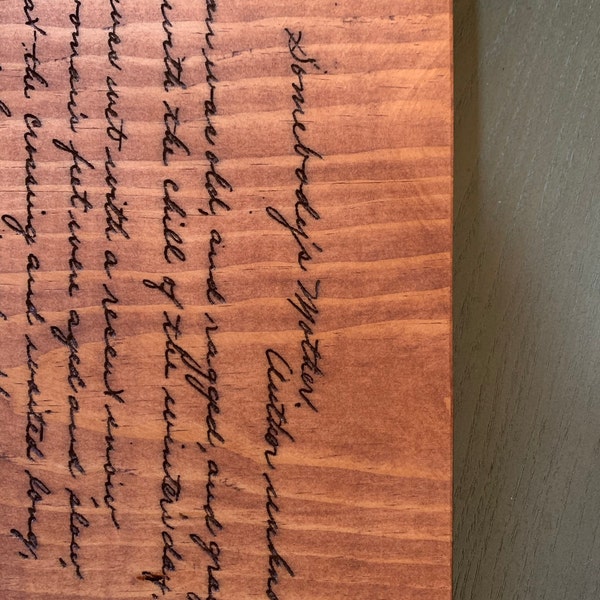 Somebody's Mother
Author unkno
an was old, and ragged, and gray
with the chill of the winter's day.
was wet with a recent snow
woman's feet were aged and slow,
at the crossing and waited long,